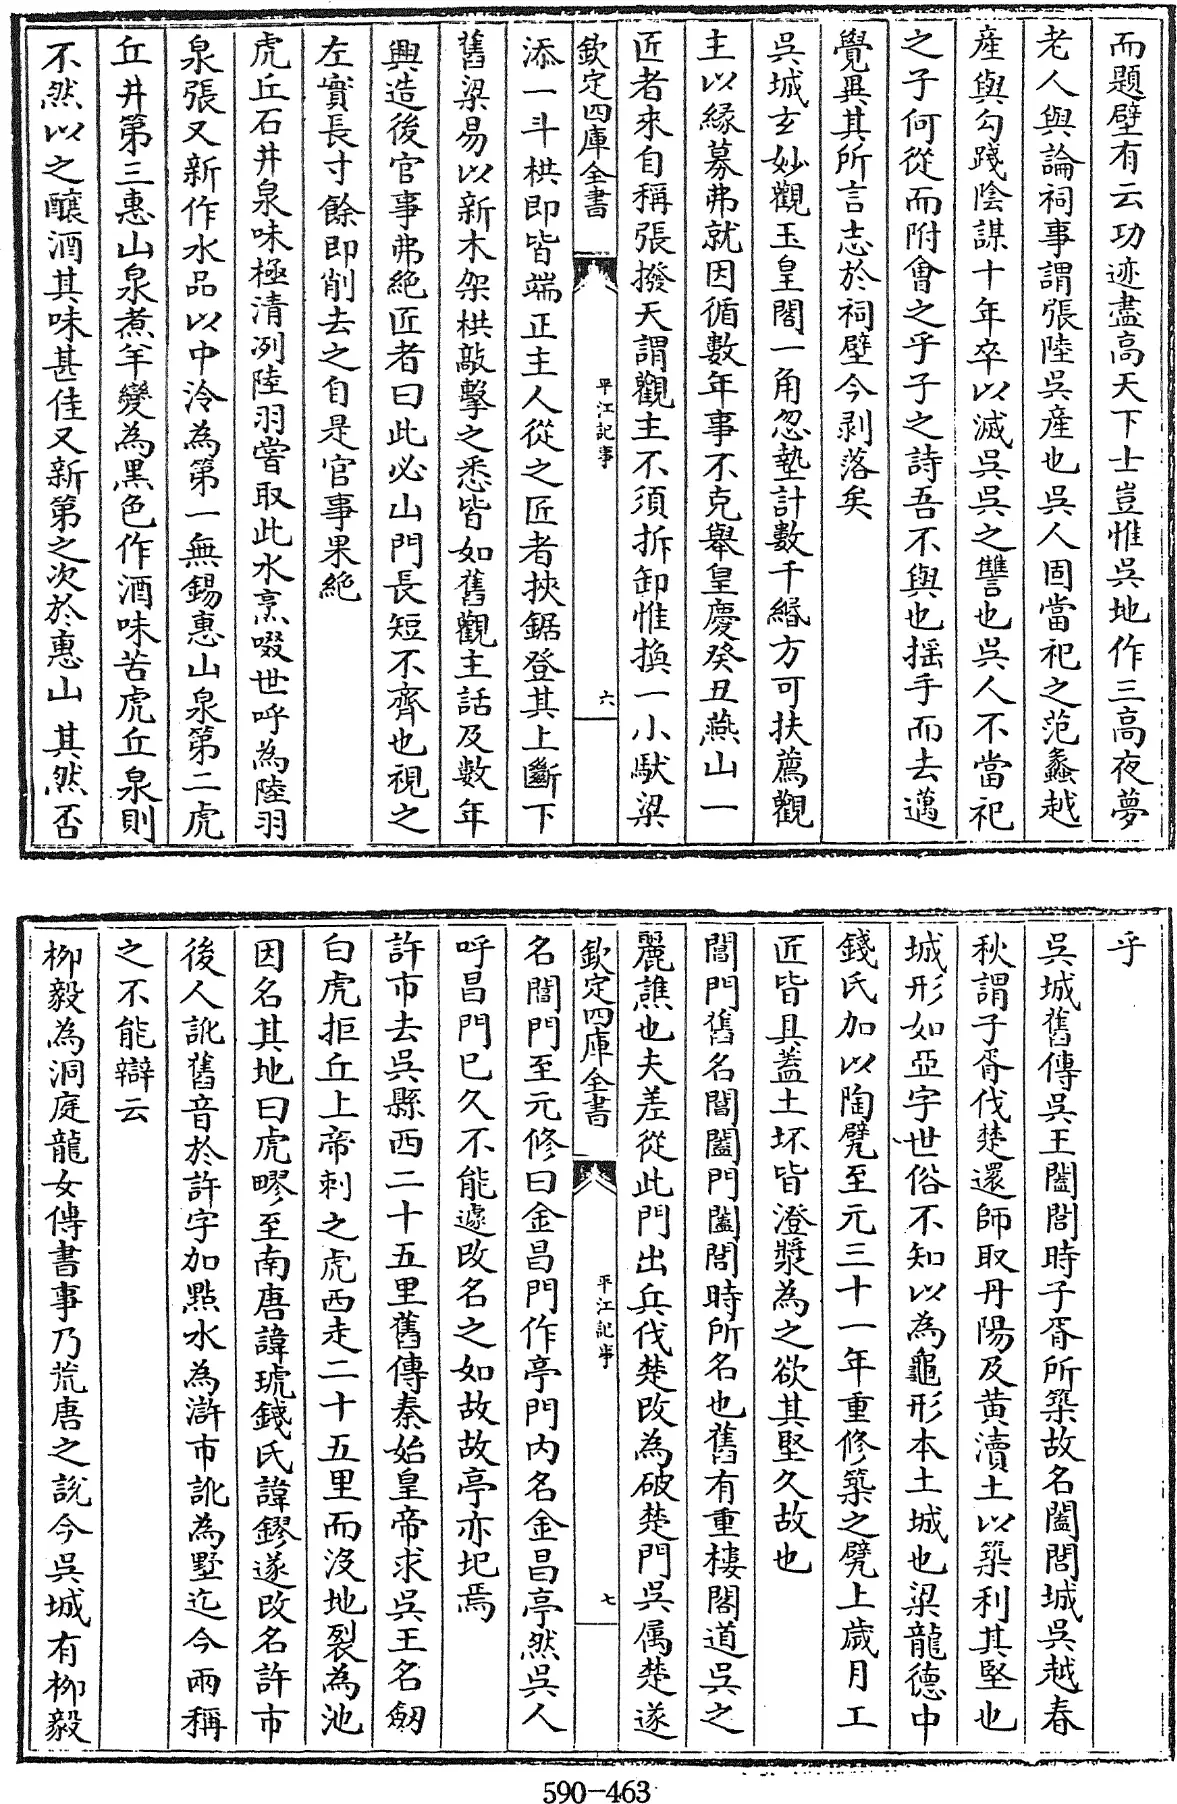 而題壁有云功迹盡高天下士豈惟吳地作三高夜夢
老人與論祠事謂張陸吳産也吳人固當祀之范蠡越
産與勾踐陰謀十年卒以滅吳吳之讐也吳人不當祀
之子何從而附會之乎子之詩吾不與也揺手而去邁
覺異其所言志於祠壁今剥落矣
吳城玄妙觀玉皇閣一角忽墊計數千緡方可扶薦觀
主以緣募弗就因循數年事不克舉皇慶癸丑燕山一
匠者來自稱張撥天謂觀主不須拆卸惟換一小馱梁
欽定四庫全書
平江記事
六
添一斗栱即皆端正主人從之匠者挾鋸登其上斷下
舊梁易以新木架栱敲擊之悉皆如舊觀主話及數年
興造後官事弗絶匠者曰此必山門長短不齊也視之
左實長寸餘即削去之自是官事果絶
虎丘石井泉味極清冽陸羽嘗取此水烹啜世呼為陸羽
泉張又新作水品以中泠為第一無錫惠山泉第二虎
丘井第三惠山泉煮羊變為黒色作酒味苦虎丘泉則
不然以之釀酒其味甚佳又新第之次於惠山其然否
乎
吳城舊傳吳王闔閭時子胥所築故名闔閭城吳越春
秋謂子胥伐楚還師取丹陽及黄瀆土以築利其堅也
城形如亞字世俗不知以為龜形本土城也梁龍德中
錢氏加以陶甓至元三十一年重修築之甓上歲月工
匠皆具蓋土坏皆澄漿為之欲其堅久故也
閶門舊名閶闔門闔閭時所名也舊有重樓閣道吳之
麗譙也夫差從此門出兵伐楚改為破楚門吳属楚遂
欽定四庫全書
平江記事
七
名閶門至元修曰金昌門作亭門内名金昌亭然吳人
呼昌門已久不能遽改名之如故故亭亦圮焉
許市去吳縣西二十五里舊傳秦始皇帝求吳王名劒
白虎拒丘上帝刺之虎西走二十五里而沒地裂為池
因名其地曰虎疁至南唐諱琥錢氏諱鏐遂改名許市
後人訛舊音於許字加點水為滸市訛為墅迄今兩稱
之不能辯云
柳毅為洞庭龍女傳書事乃荒唐之説今吳城有柳毅
590-463